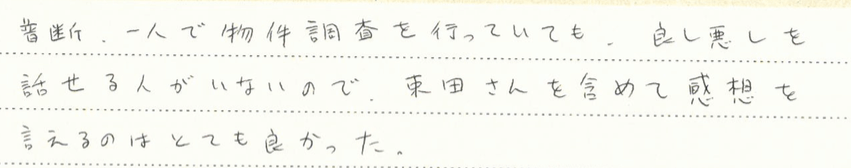 普断、一人で物件調査を行っていても、良し悪しを
話せる人がいないので、東田さんを含めて感想を
言えるのはとても良かった。